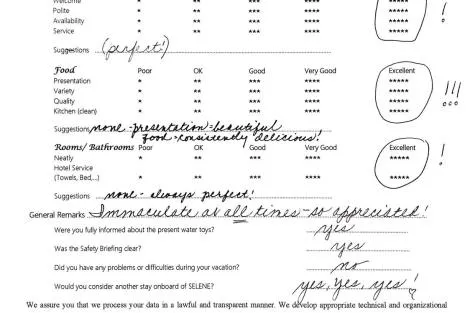 Welcome * ** *** **** *****
Polite * ** *** **** ***** !
Availability * ** *** **** *****
Service * ** *** **** *****
Suggestions (perfect!)
Food Poor OK Good Very Good Excellent
Presentation * ** *** **** *****
Variety * ** *** **** ***** !!!
Quality * ** *** **** *****
Kitchen (clean) * ** *** **** *****
Suggestions none - presentation = beautiful
food = consistently delicious!
Rooms/ Bathrooms Poor OK Good Very Good Excellent
Neatly * ** *** **** ***** !
Hotel Service
(Towels, Bed,...) * ** *** **** *****
Suggestions none - always perfect!
General Remarks Immaculate at all times - so appreciated!
Were you fully informed about the present water toys? yes
Was the Safety Briefing clear? yes
Did you have any problems or difficulties during your vacation? no
Would you consider another stay onboard of SELENE? yes, yes, yes!
We assure you that we process your data in a lawful and transparent manner. We develop appropriate technical and organizational